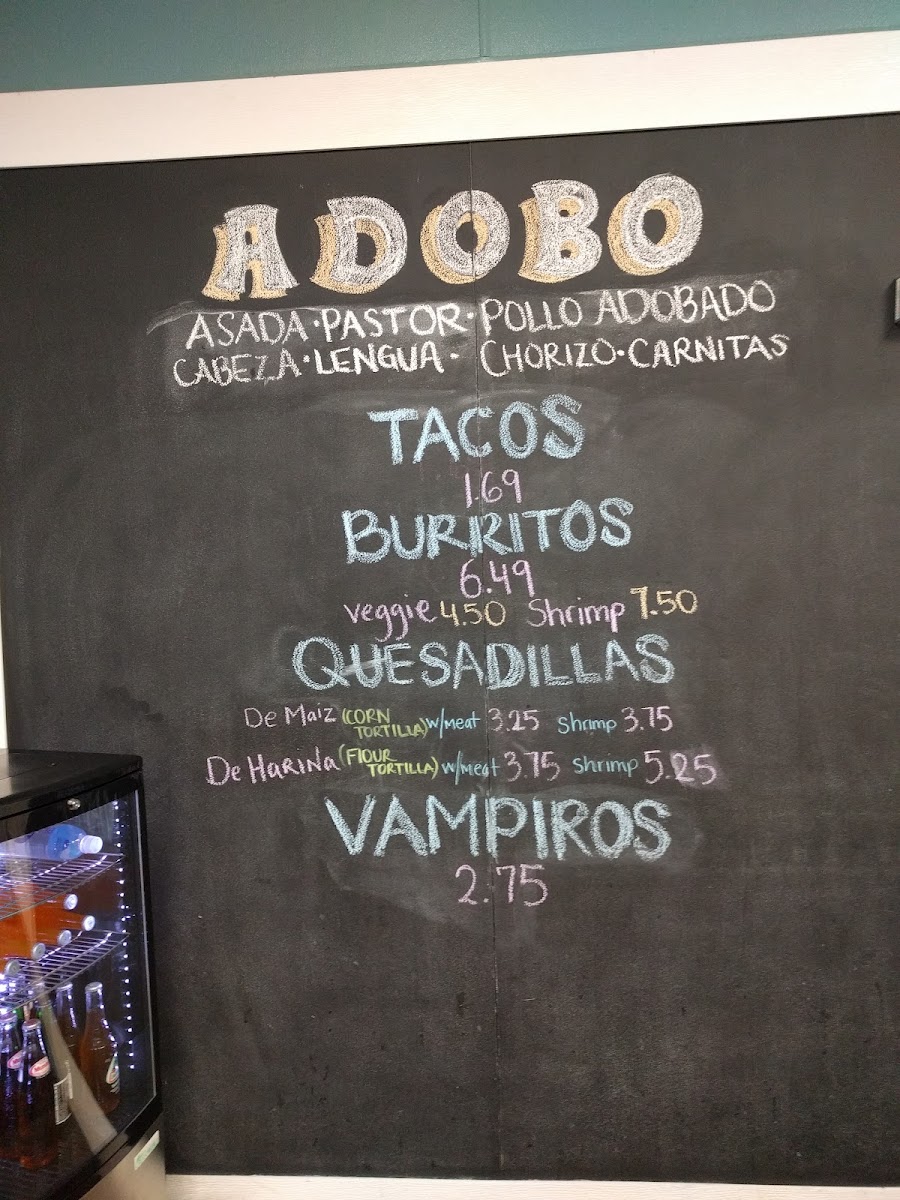 ADOBO
ASADA · PASTOR · POLLO ADOBADO
CABEZA · LENGUA · CHORIZO · CARNITAS
TACOS
1.69
BURRITOS
6.49
veggie 4.50 Shrimp 7.50
QUESADILLAS
De Maiz (CORN TORTILLA) w/meat 3.25 Shrimp 3.75
De HARINA (FlOUR TORTILLA) w/meat 3.75 Shrimp 5.25
VAMPIROS
2.75